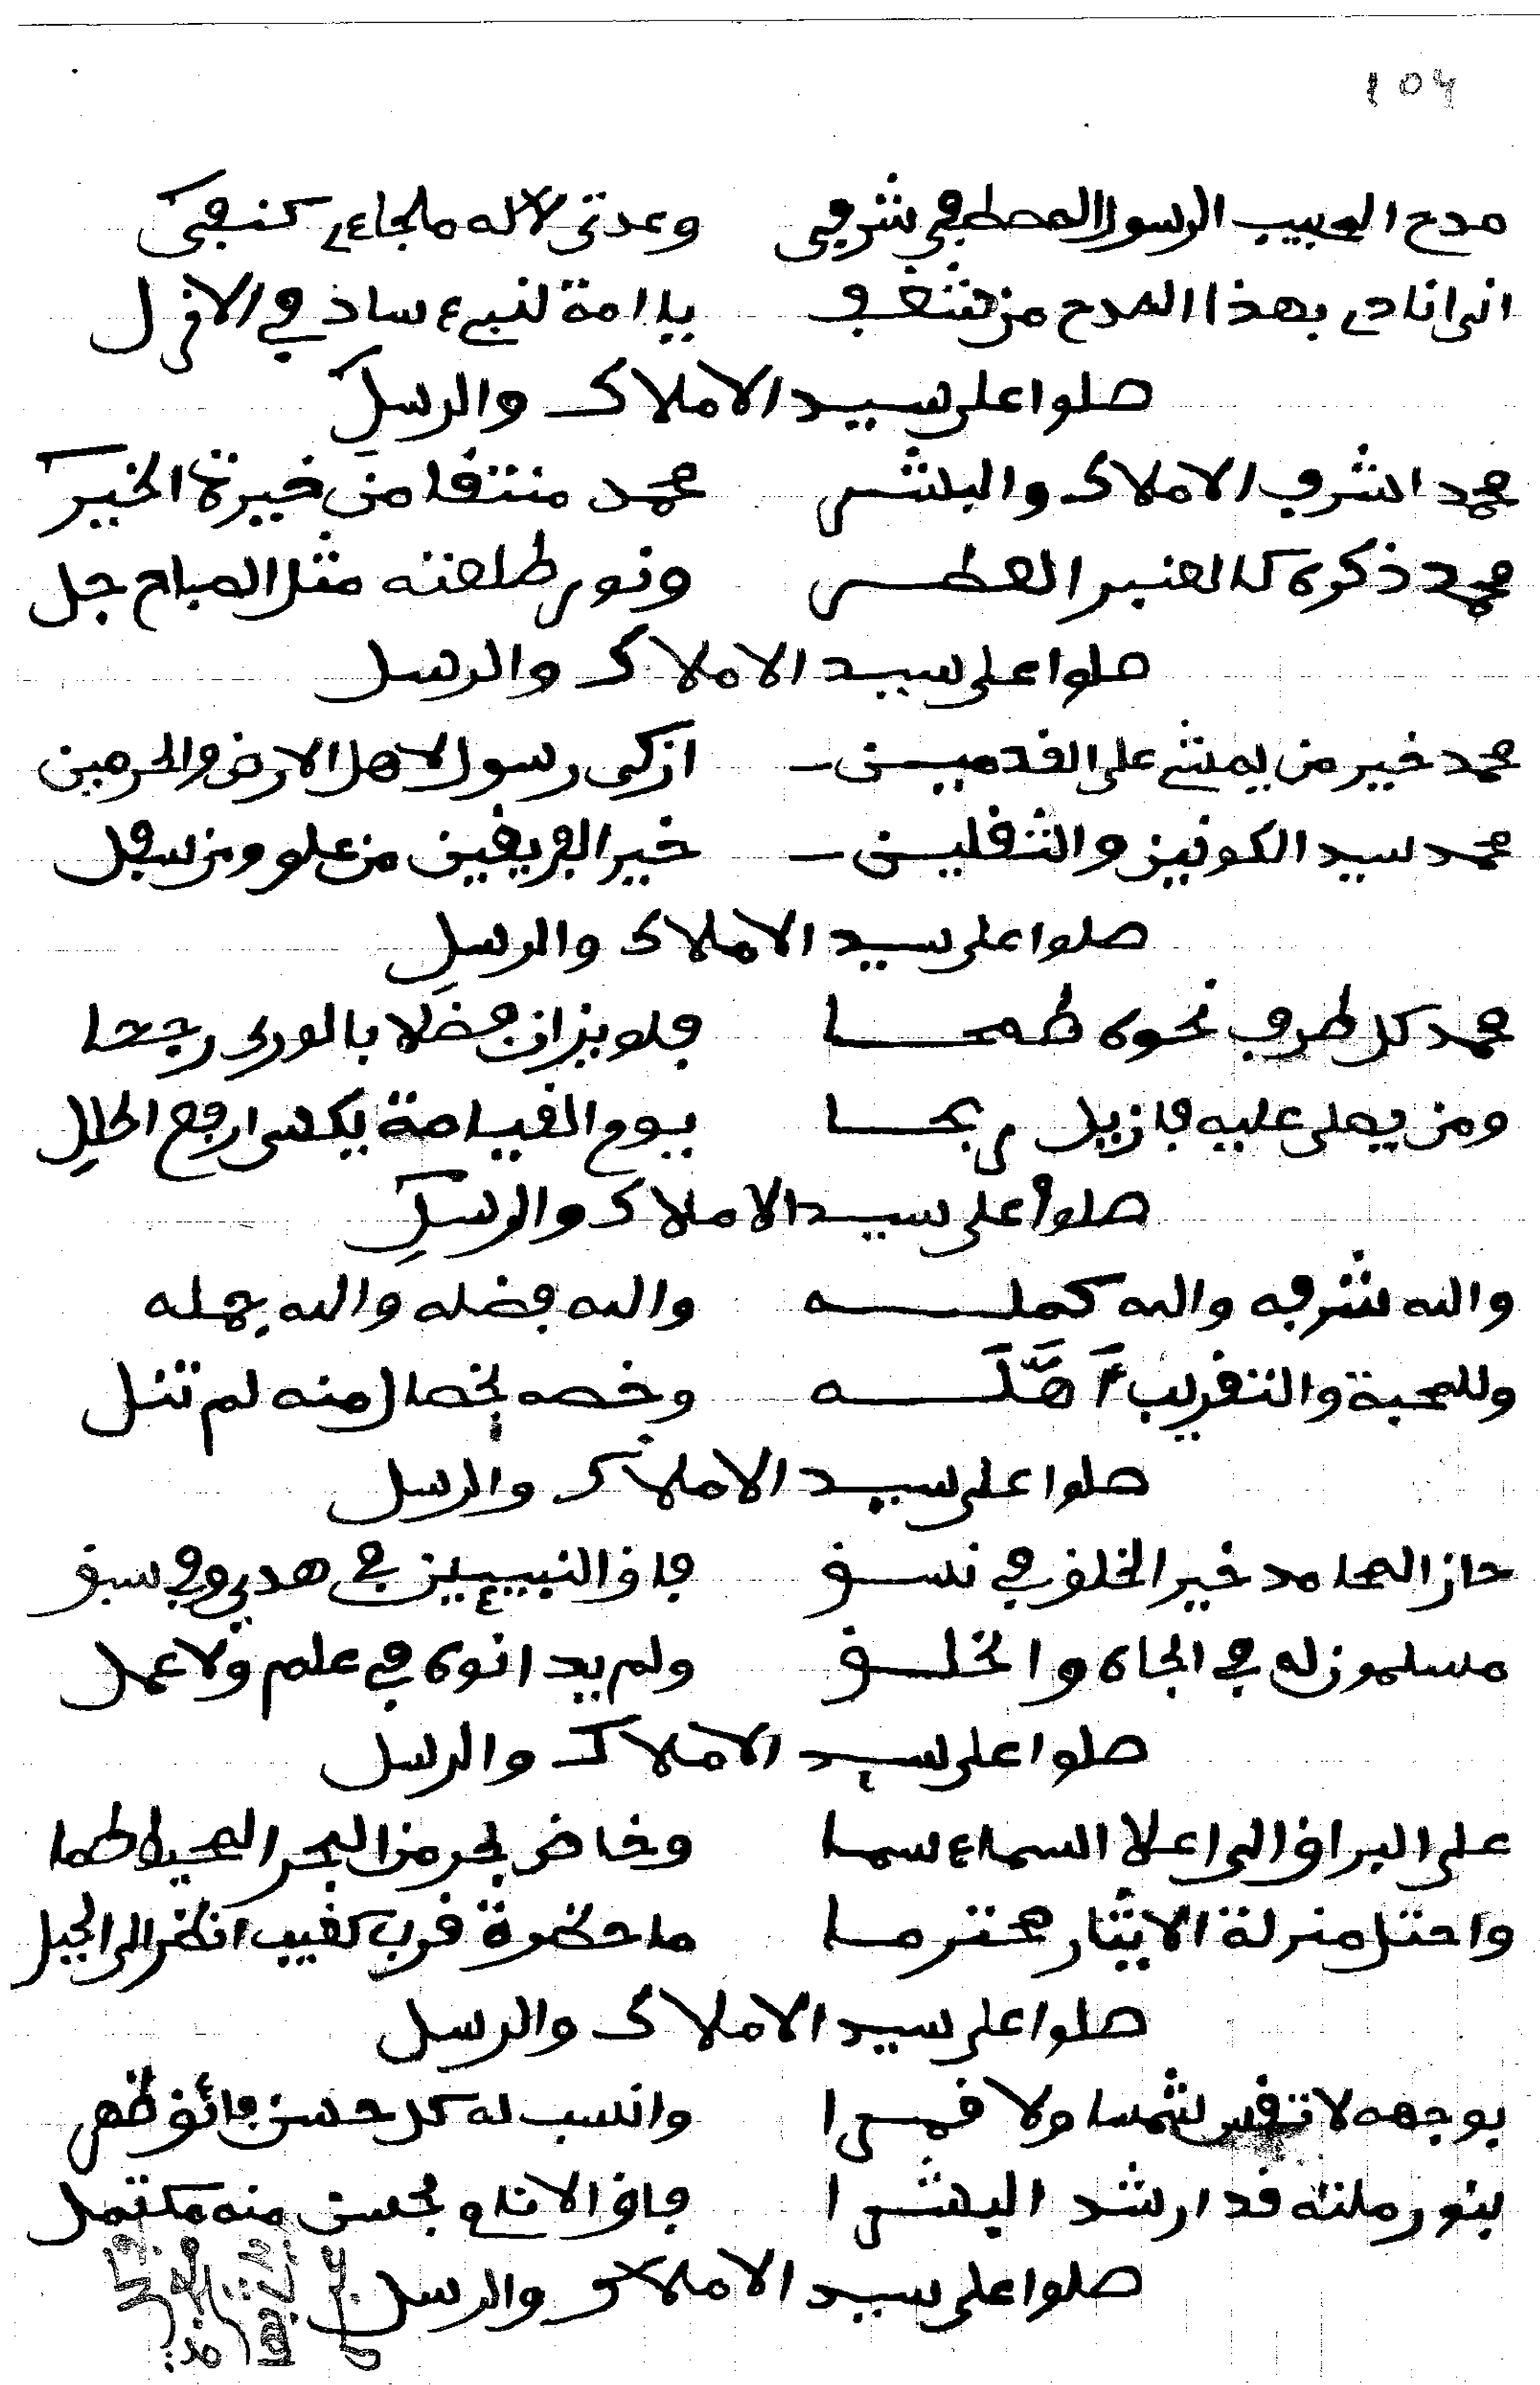 104
مدح الحبيب الرسول المصطفى شرفي وعدتي لاله ملجاء كنفي
اني انادي بهذا المدح من شغف يا امة لنبيء ساد في الازل
صلوا على سيد الاملاك والرسل
محمد اشرف الاملاك والبشر محمد منتقا من خيرة الخير
محمد ذكره كالعنبر العطر ونور طلعته مثل الصباح جل
صلوا على سيد الاملاك والرسل
محمد خير من يمشي على القدمين ازكى رسول لاهل الارض والحرمين
محمد سيد الكونين والثقلين خير الفريقين من علو ومن سفل
صلوا على سيد الاملاك والرسل
محمد كل طرف نحوه طمحا فلو يزان فضلا بالورى رجحا
ومن يصلى عليه فاز بل ربحا يوم القيامة يكسى ارفع الحلل
صلوا على سيد الاملاك والرسل
والله شرفه والله كمله والله فضله والله جمله
وللمحبة والتقريب أهَّلَه وخصه بخصال منه لم تنل
صلوا على سيد الاملاك والرسل
حاز المحامد خير الخلق في نسق فاق النبيين في هدي وفي سبق
مسلمون له في الجاه والخلق ولم يدانوه في علم ولا عمل
صلوا على سيد الاملاك والرسل
على البراق الى اعلا السماء سما وخاض بحر من البحر المحيط طما
واحتل منزلة الايثار محترما ما حضرة قرب كغيب انظر الى الجبل
صلوا على سيد الاملاك والرسل
بوجهه لا تقس شمسا ولا قمرا وانسب له كل حسن فائق ظهر
بنور ملته قد ارشد البشرا فاق الانام بحسن منه مكتمل
صلوا على سيد الاملاك والرسل